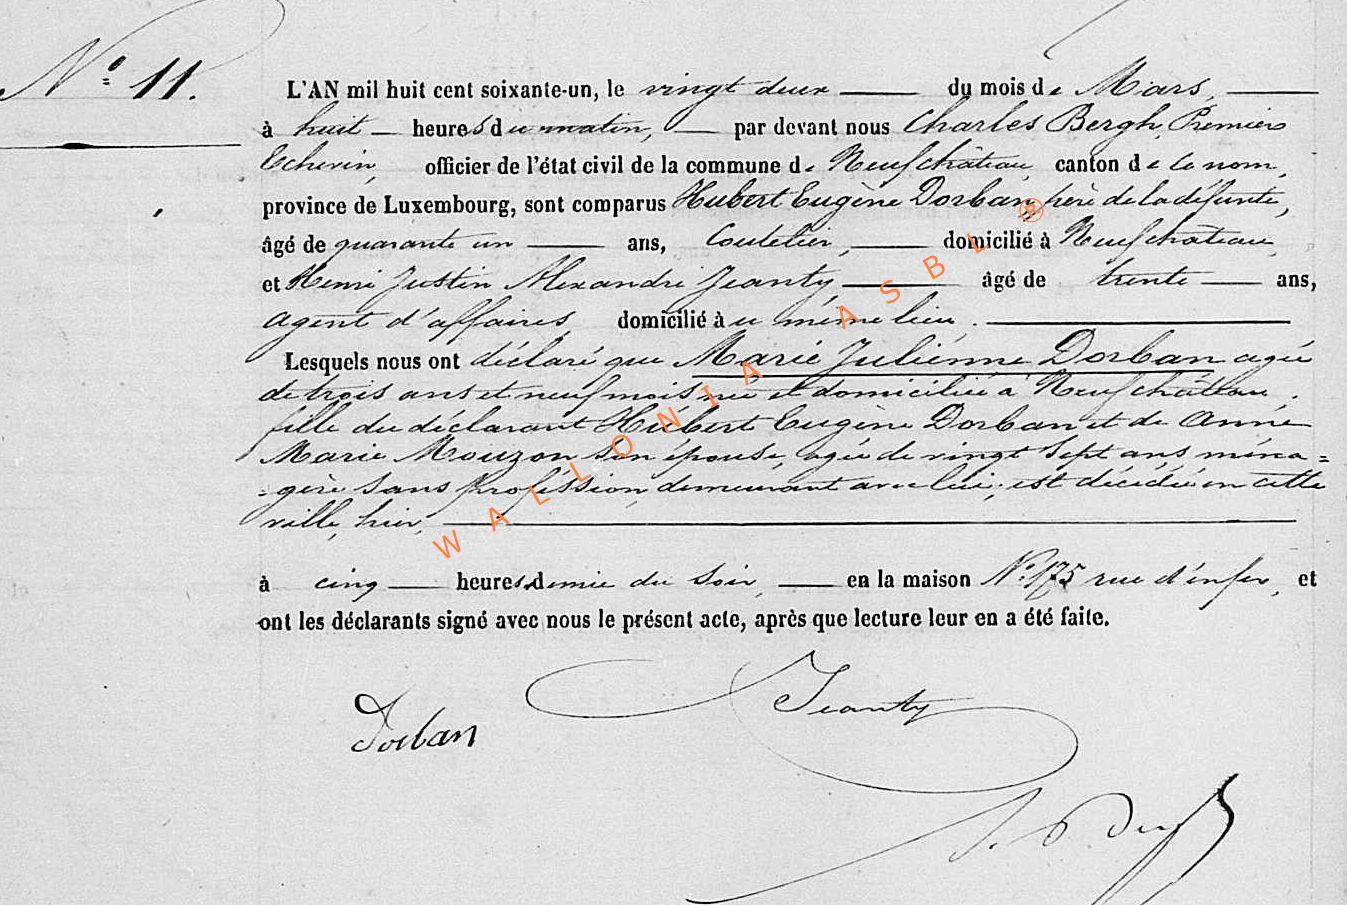 N° 11.
L'AN mil huit cent soixante-un, le vingt deux du mois de Mars,
à huit heures du matin, par devant nous Charles Bergh, Premier
Echevin, officier de l'état civil de la commune de Neufchâteau, canton de ce nom,
province de Luxembourg, sont comparus Hubert Eugène Dorban, père de la défunte,
âgé de quarante un ans, Coutelier, domicilié à Neufchâteau,
et Henri Justin Alexandre Jeanty, âgé de trente ans,
agent d'affaires, domicilié à u même lieu.
Lesquels nous ont déclaré que Marie Julienne Dorban agée
de trois ans et neuf mois née et domiciliée à Neufchâteau,
fille du déclarant Hubert Eugène Dorban et de Anne
Marie Mouzon son épouse, agée de vingt sept ans ména=
=gère sans profession, demeurant avec lui, est décédée en cette
ville, hier,
à cinq heures demie du soir, en la maison N° 175 rue d'enfer, et
ont les déclarants signé avec nous le présent acte, après que lecture leur en a été faite.
Dorban Jeanty
WALLONIA ASBL ®